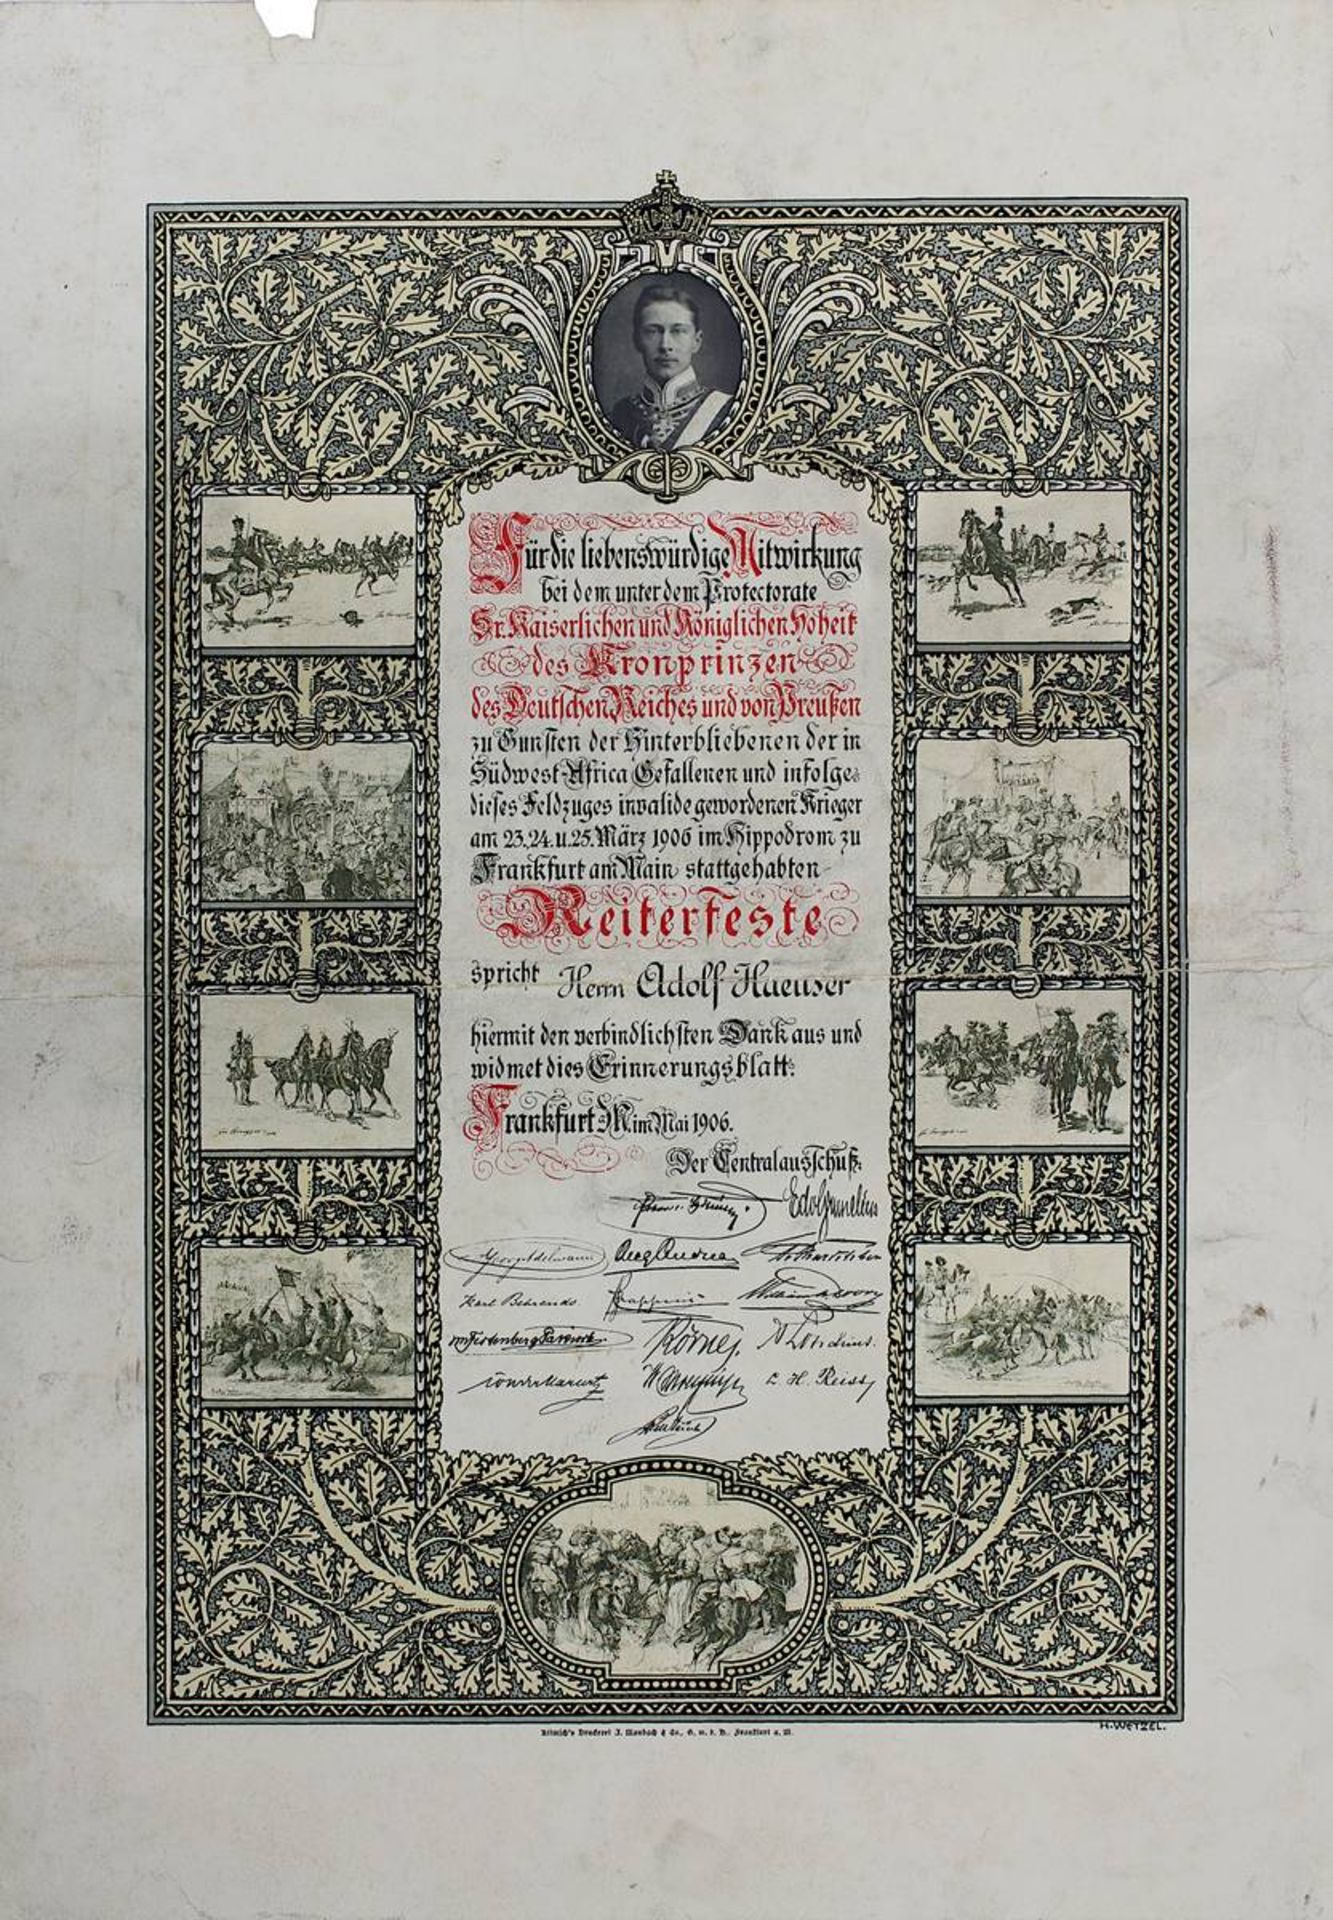 Für die liebenswürdige Mitwirkung
bei dem unter dem Protectorate
Sr. Kaiserlichen und Königlichen Hoheit
des Kronprinzen
des Deutschen Reiches und von Preußen
zu Gunsten der Hinterbliebenen der in
Südwest-Africa Gefallenen und infolge
dieses Feldzuges invalide gewordenen Krieger
am 23.,24. u. 25. März 1906 im Hippodrom zu
Frankfurt am Main stattgehabten
Reiterfeste
spricht Herrn Adolf Haeuser
hiermit den verbindlichsten Dank aus und
widmet dies Erinnerungsblatt.
Frankfurt M. im Mai 1906.
Der Centralausschuß:
Karl Behrends
Körner.
L. H. Reiss
Druckerei J. Maubach & Co., G. m. b. H., Frankfurt a. M.
H. WETZEL.